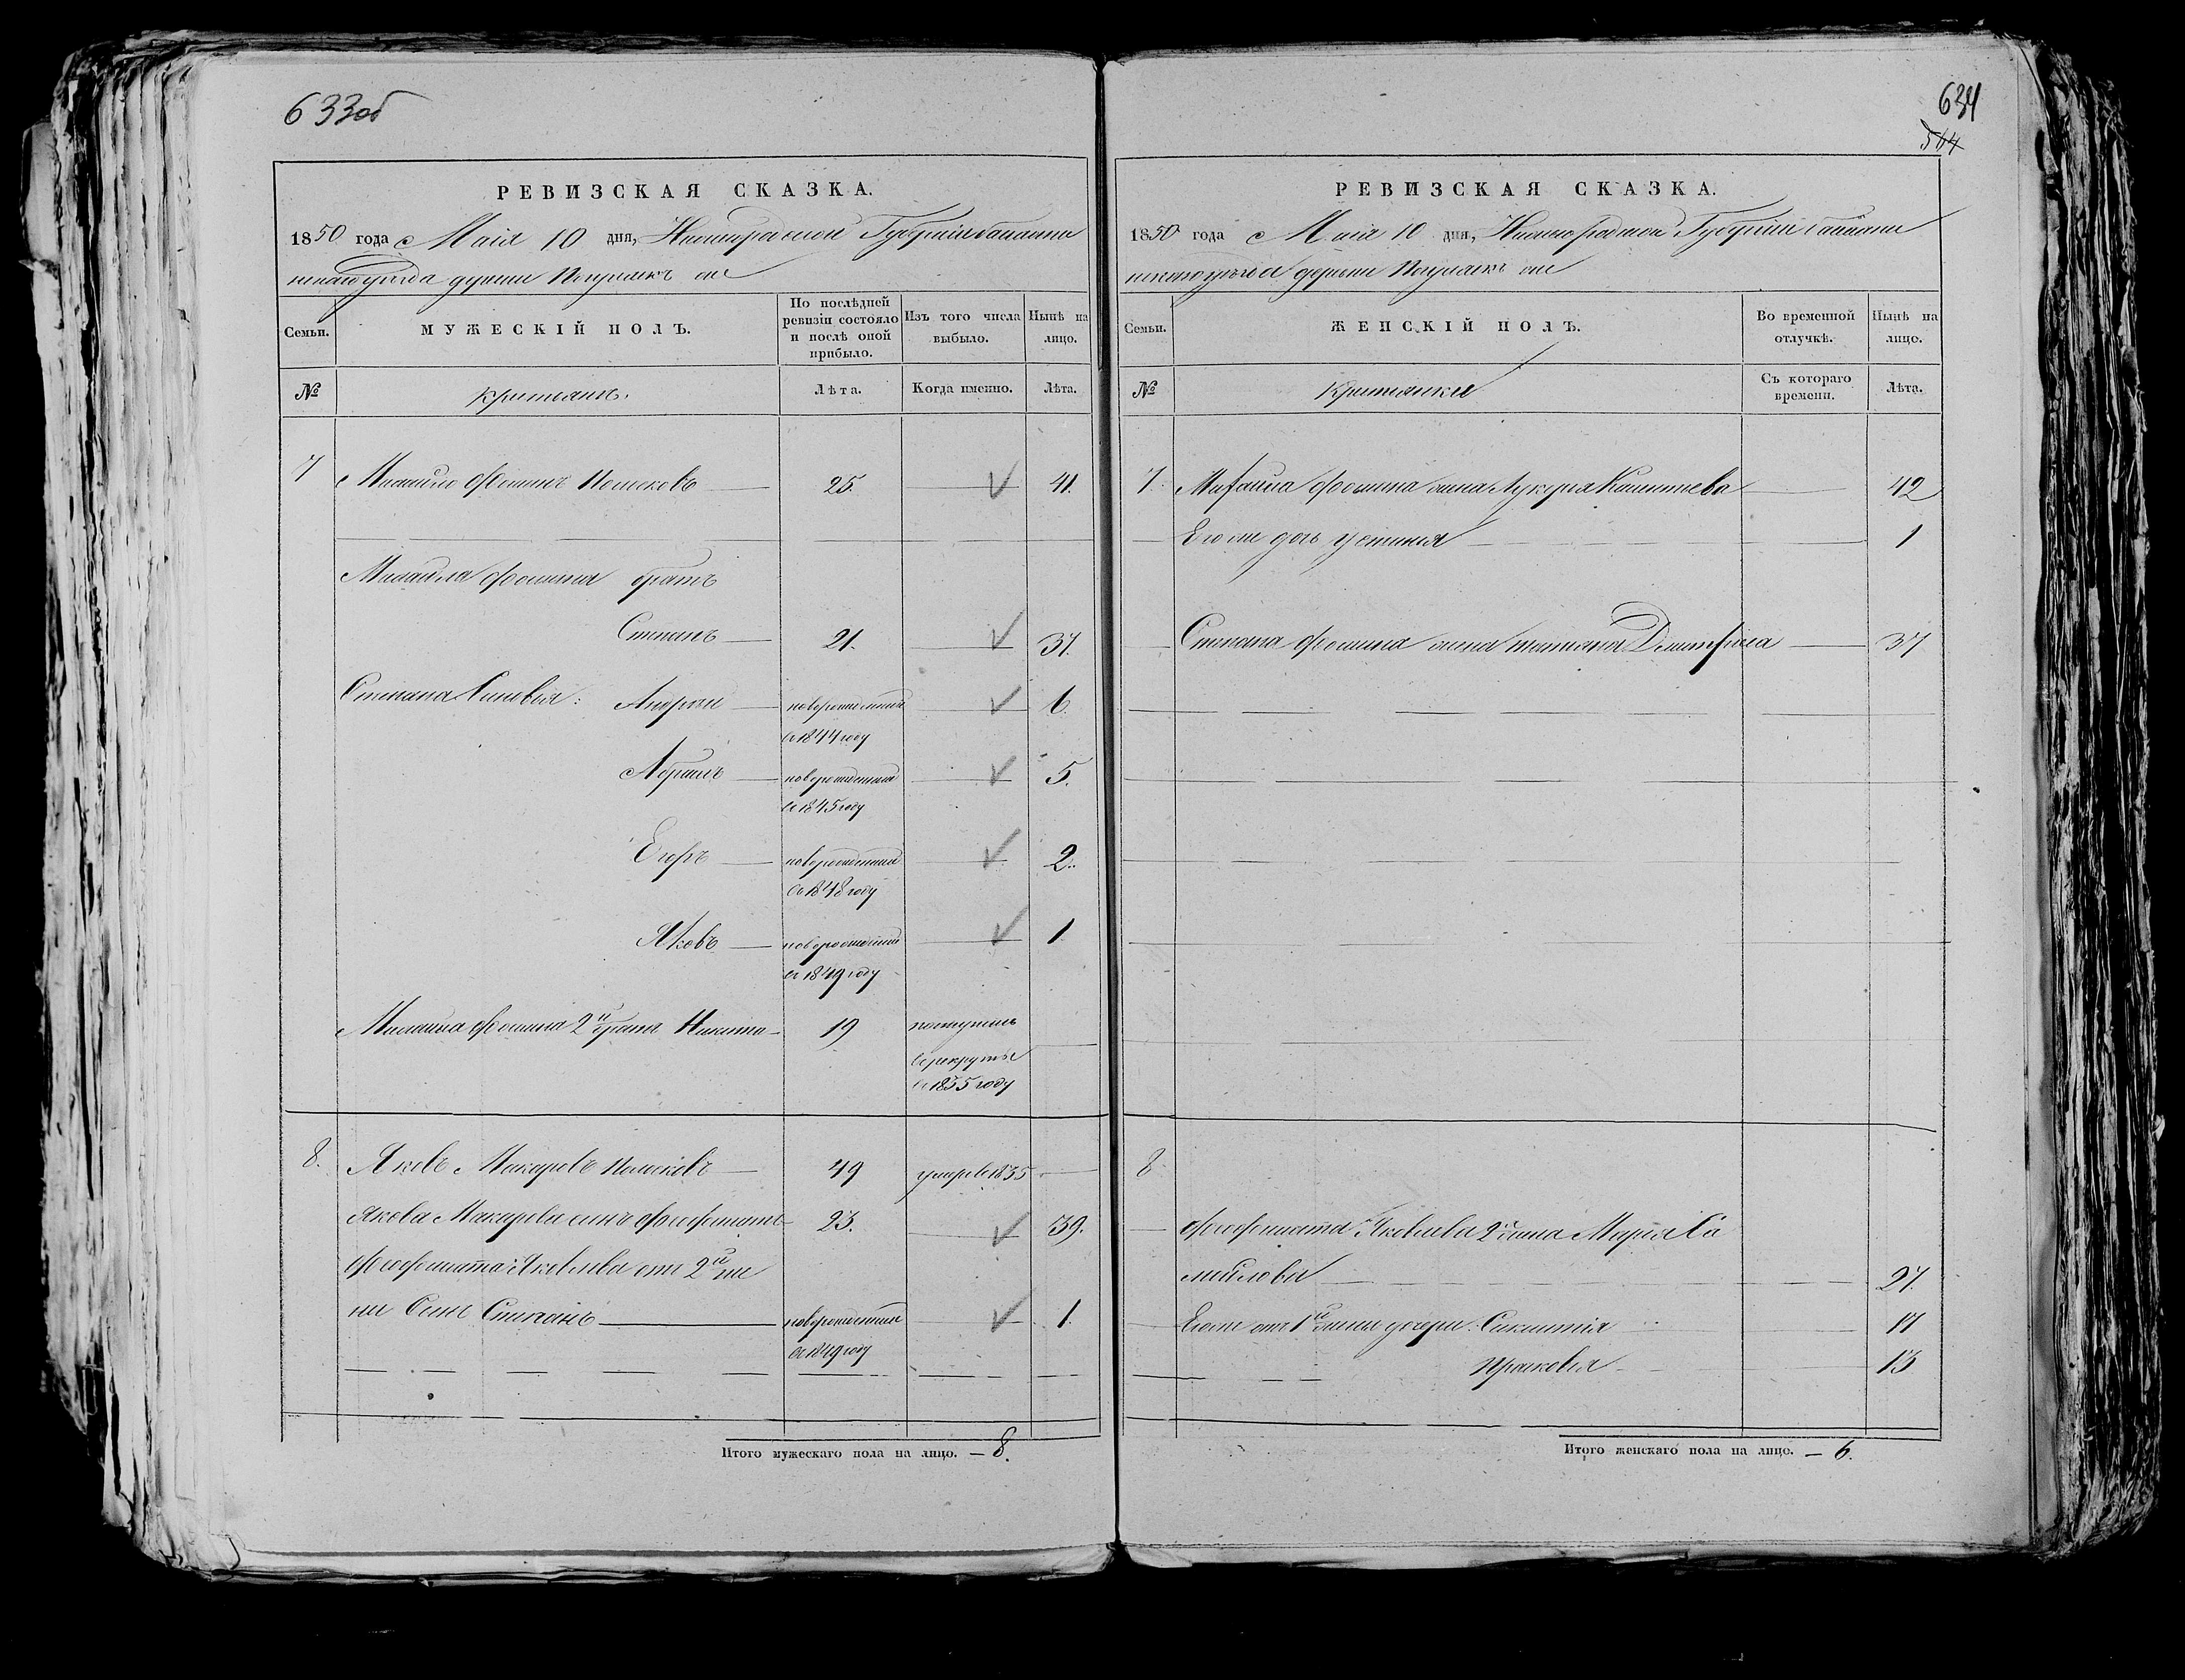 633об
РЕВИЗСКАЯ СКАЗКА.
1850 года Маія 10 дня, Нижегородской Губерніи Балахни
нскаго уѣзда деревни
Семьи.
МУЖЕСКІЙ ПОЛЪ.
По послѣдней ревизіи состояло и послѣ оной прибыло.
Изъ того числа выбыло.
Нынѣ на лицо.
№
Крестьянъ.
Лѣта.
Когда именно.
Лѣта.
7 Михайло Фоминъ 25. 41.
Михайла Фомина братъ
Степанъ 21. 37.
Степана Сыновья: Андрей новорожденный 6
въ 1844 году
Абрамъ новорожденный 5.
въ 1845 году
Егоръ новорожденный 2.
въ 1848 году
Яковъ новорожденный 1
въ 1849 году
Михайла Фомина 2й братъ Никита 19 поступилъ
въ рекруты
въ 1835 году
8. Яковъ Макаровъ 49 умеръ въ 1835
Якова Макарова сынъ 23. 39.
Яковлева отъ 2й же
ны Сынъ Степанъ новорожденный 1.
въ 1849 году
Итого мужескаго пола на лицо. — 8.
634
564
РЕВИЗСКАЯ СКАЗКА.
1850 года Маія 10 дня, Нижегородской Губерніи Балахни
нскаго уѣзда деревни
Семьи.
ЖЕНСКІЙ ПОЛЪ.
Во временной отлучкѣ.
Нынѣ на лицо.
№
Крестьянки
Съ котораго времени.
Лѣта.
7. Михайла Фомина жена Лукерья 42
Его же дочь Устинья 1
Степана Фомина жена Татьяна 37
8
Яковлева 2я жена Марья Са
мойлова 27.
Его же отъ 1й жены дочери: 17
Прасковья 13
Итого женскаго пола на лицо. — 6.